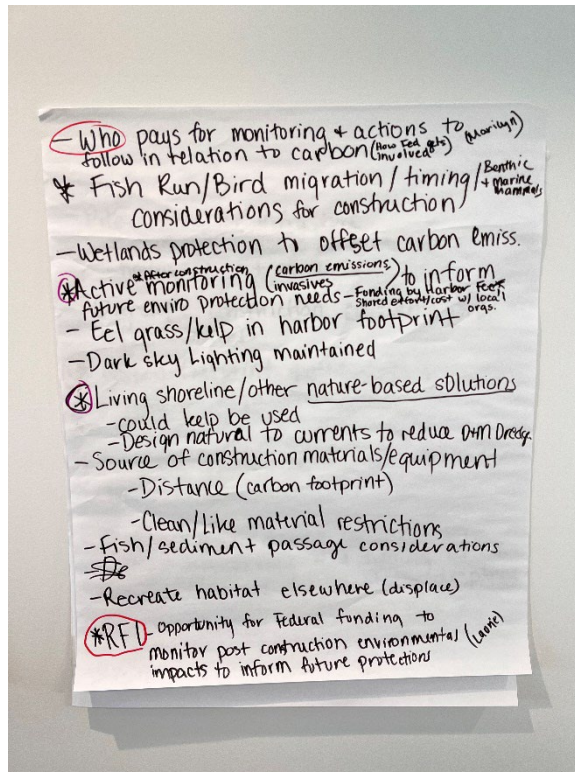 - Who pays for monitoring + actions to (Marilyn)
follow in relation to carbon (How Fed gets involved)
* Fish Run/Bird migration/timing/ Benthic + marine mammals
considerations for construction
- Wetlands protection to offset carbon emiss.
* Active monitoring (carbon emissions) to inform
* After construction
invasives
future enviro protection needs - Funding by Harbor Fees
Shared effort/cost w/ local orgs.
- Eel grass/kelp in harbor footprint
- Dark sky Lighting maintained
* Living shoreline/other nature-based solutions
- could kelp be used
- Design natural to currents to reduce O+M Dredg.
- Source of construction materials/equipment
- Distance (carbon footprint)
- Clean/Like material restrictions
- Fish/sediment passage considerations
- Recreate habitat elsewhere (displace)
*RFI - Opportunity for Federal funding to
monitor post construction environmental (Laurie)
impacts to inform future protections